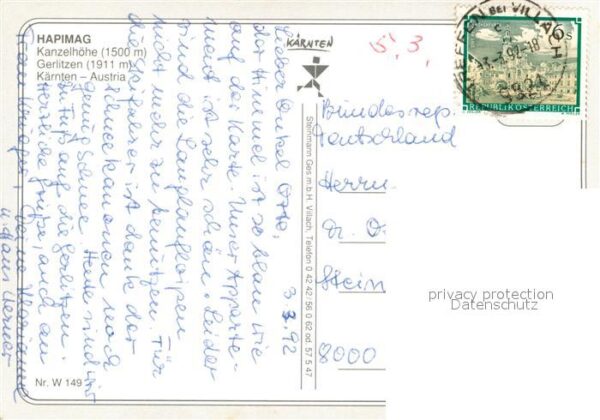 HAPIMAG
Kanzelhöhe (1500 m)
Gerlitzen (1911 m)
Kärnten – Austria
KÄRNTEN
5. 3.
BEI VILLACH
6 S
REPUBLIK ÖSTERREICH
3.3.92
Lieber Onkel Otto,
der Himmel ist so blau wie
auf der Karte. Unser Apparte-
ment ist sehr schön. Leider
sind die Langlaufloipen
nicht mehr zu benutzen. Für
Skifahrer ist dank der
Schneekanonen noch
genug Schnee. Heute sind wir
zu Fuß auf die Gerlitzen.
Herzliche Grüße, auch an
Deine Marianne
u. Hans Werner
Bundesrep.
Deutschland
Herrn
Dr. O
Stein
8000
Stohrmann Ges m b H. Villach, Telefon 0 42 42 56 0 62 od. 57 5 47
Nr. W 149
privacy protection
Datenschutz